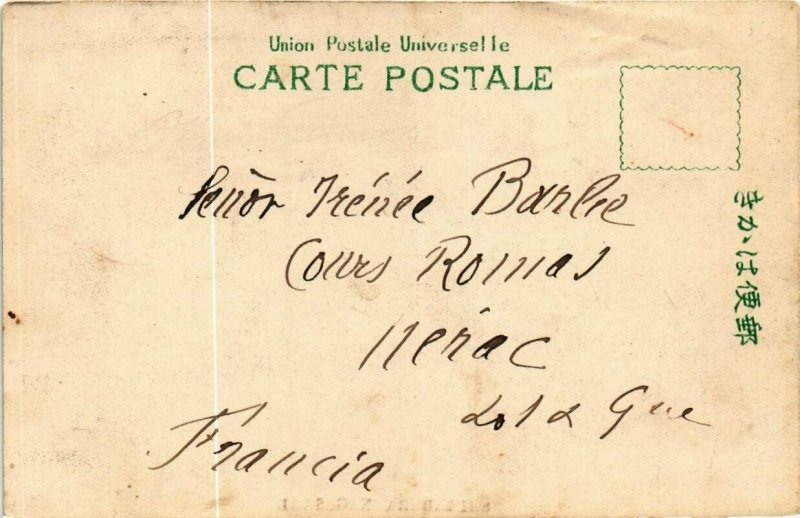 Union Postale Universelle
CARTE POSTALE
きかは便郵
Señor Irénée Barbe
Cours Romas
Nérac
Lot & Gne
Francia